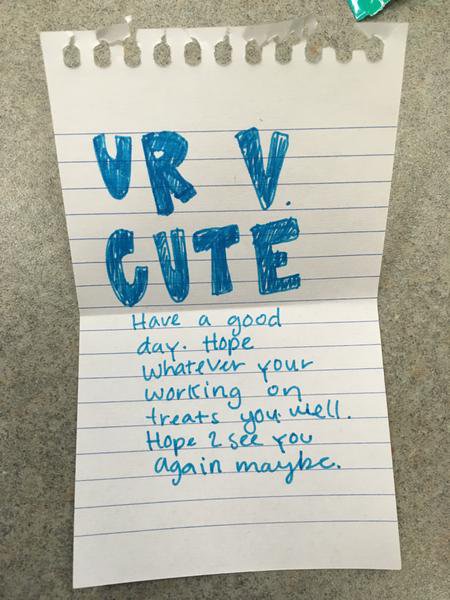 UR V.
CUTE
Have a good
day. Hope
whatever your
working on
treats you well.
Hope 2 see you
again maybe.